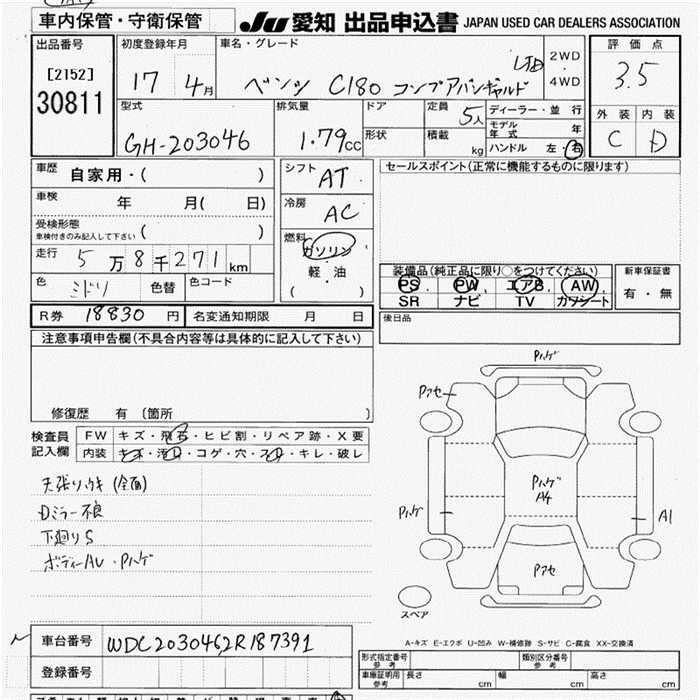 車内保管・守衛保管
JU 愛知 出品申込書 JAPAN USED CAR DEALERS ASSOCIATION
出品番号
[2152]
30811
初度登録年月
17 4月
車名・グレード
ベンツ C180 コンプ アバンギャルド LTD
2WD
4WD
評価点
3.5
外装 内装
C D
型式
GH-203046
排気量
1.79cc
ドア
形状
定員
5人
積載
kg
ディーラー・並行
モデル年式 年
ハンドル 左・右
車歴 自家用・( )
車検 年 月( 日)
受検形態
車検付きのみ記入して下さい ( )
走行 5万8千271km
色 ミドリ 色替 色コード
シフト AT
冷房 AC
燃料 ガソリン
軽・油
( )
セールスポイント(正常に機能するものに限ります)
装備品(純正品に限り○をつけてください)
PS PW エアB AW
SR ナビ TV カワシート
新車保証書
有・無
R券 18830円 名変通知期限 月 日
後日品
注意事項申告欄(不具合内容等は具体的に記入して下さい)
修復歴 有 (箇所 )
検査員記入欄
FW キズ・飛石・ヒビ割・リペア跡・X要
内装 キズ・汚れ・コゲ・穴・スレ・キレ・破レ
天張りウキ(全面)
Dミラー不良
下廻りS
ボディーAU・Pハゲ
Pハゲ
Pアセ
Pハゲ
A4
Pハゲ
A1
Pアセ
スペア
車台番号 WDC2030462R187391
登録番号
A-キズ E-エクボ U-凹み W-補修跡 S-サビ C-腐食 XX-交換済
形式指定番号 参考
類別区分番号 参考
車庫証明用 参考 長さ cm 幅 cm 高さ cm